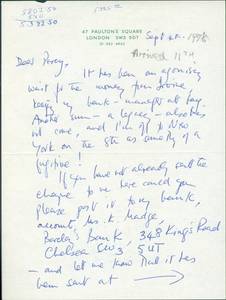 47 PAULTONS SQUARE
LONDON SW3 5DT
Sept 1978
Arrived 11th
Dear Percy,
It has been an agonising
wait for the money from
keeping my bank-manager at bay.
Another sum - a legacy - also has
not come, and I'm off to New
York on the 8th as something of a
fugitive!
If you have not already sent the
cheque to me here could you
please post it to my bank,
account, Mrs. K. Madge,
Barclays Bank, 348 King's Road
Chelsea SW3 5UT
- and let me know that it has
been sent at